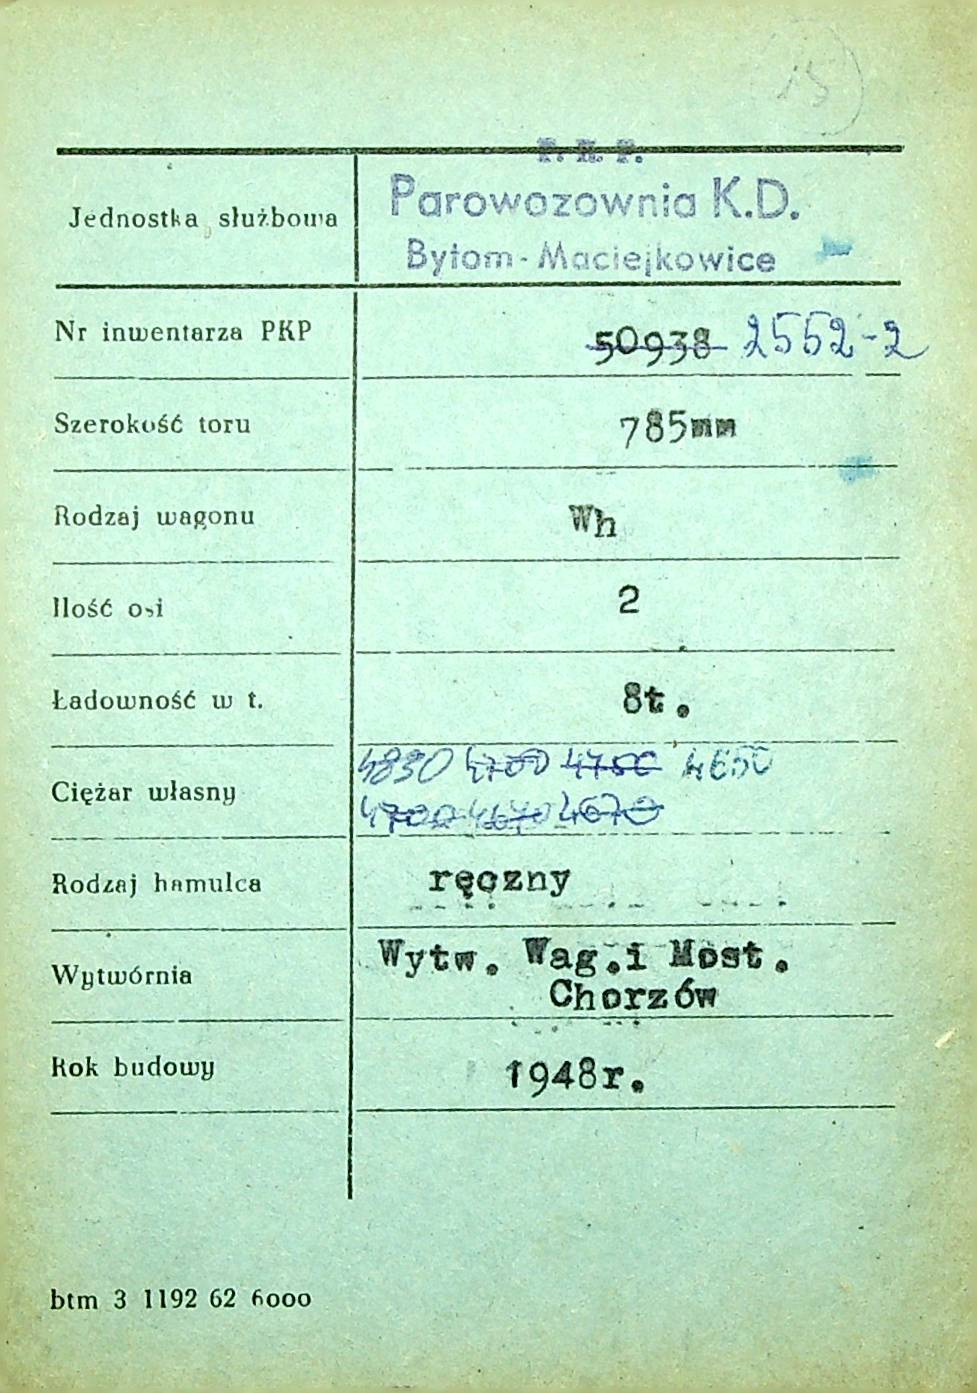 15
P. K. P.
Jednostka służbowa Parowozownia K.D.
Bytom-Maciejkowice
Nr inwentarza PKP 50938 2552-2
Szerokość toru 785mm
Rodzaj wagonu Wh
Ilość osi 2
Ładowność w t. 8t.
Ciężar własny 4830 4700 4750 4650
4700 4640 4670
Rodzaj hamulca ręczny
Wytwórnia Wytw. Wag.i Most.
Chorzów
Rok budowy 1948r.
btm 3 1192 62 6000